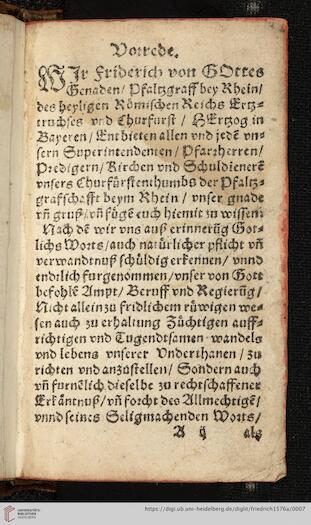 Vorrede.
WJr Friderich von GOttes
Genaden / Pfaltzgraff bey Rhein /
des heyligen Römischen Reichs Ertz-
truchses vnd Churfürst / HErtzog in
Bayeren / Entbieten allen vnd jedē vn-
sern Superintendenten / Pfarrherren /
Predigern / Kirchen vnd Schuldienerē
vnsers Churfürstenthumbs der Pfaltz-
graffschafft beym Rhein / vnser gnade
vñ gruß / vñ fügē euch hiemit zu wissen:
Nach dē wir vns auß erinnerūg Got-
lichs Worts / auch natürlicher pflicht vñ
verwandtnuß schüldig erkennen / vnnd
endtlich fürgenommen / vnser von Gott
befohlē Ampt / Beruff vnd Regierūg /
Nicht allein zu fridlichem rüwigen we-
sen auch zu erhaltung Züchtigen auff-
richtigen vnd Tugendtsamen wandels
vnd lebens vnserer Vnderthanen / zu
richten vnd anzustellen / Sondern auch
vñ fürnēlich dieselbe zu rechtschaffener
Erkäntnuß / vñ forcht des Allmechtigē /
vnnd seines Seligmachenden Worts /
A ij als
UNIVERSITÄTS-
BIBLIOTHEK
HEIDELBERG
https://digi.ub.uni-heidelberg.de/diglit/friedrich1576a/0007